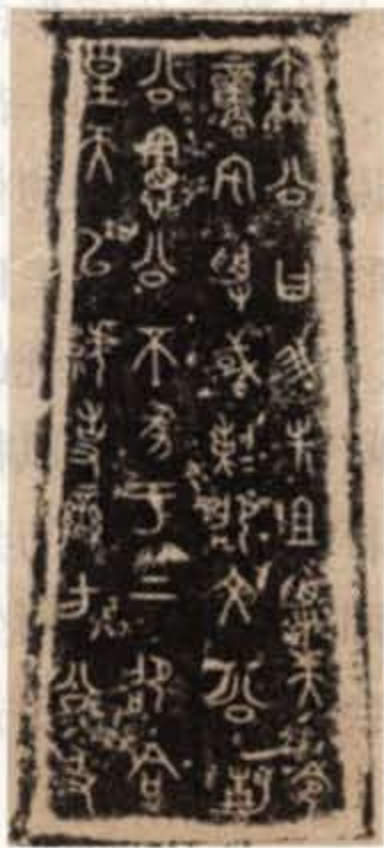 秦公曰我先祖受天令
商宅受或剌=卲文公靜
公憲公不㒸于上卲合
皇天以虩事䜌方公及